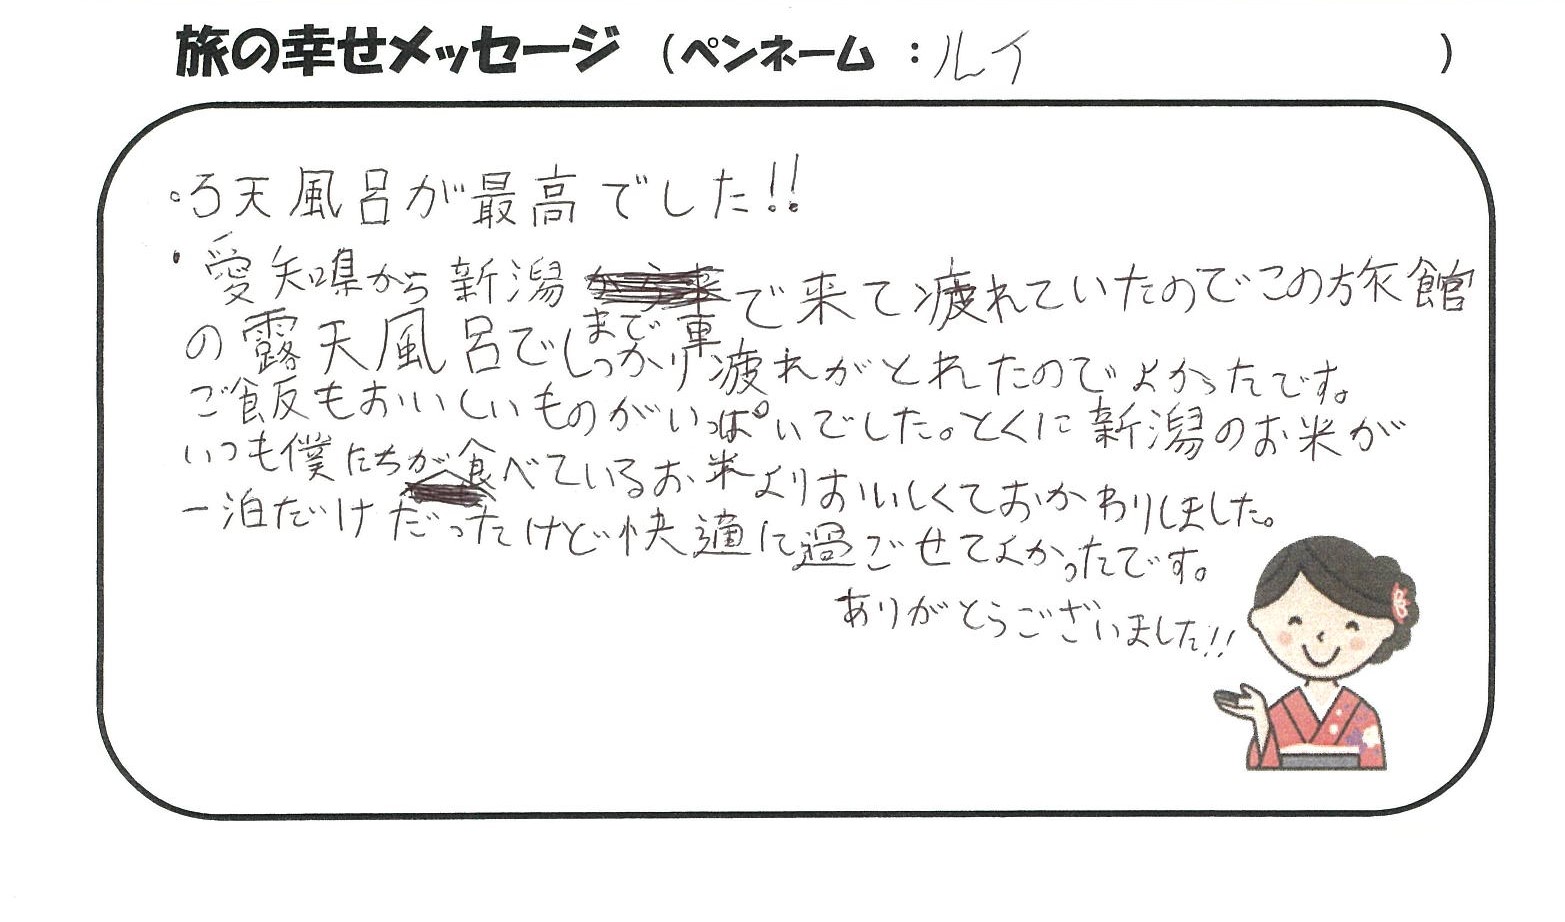 旅の幸せメッセージ（ペンネーム：ルイ）
・ろ天風呂が最高でした!!
・愛知県から新潟まで車で来て疲れていたのでこの旅館
の露天風呂でしっかり疲れがとれたのでよかったです。
ご飯もおいしいものがいっぱいでした。とくに新潟のお米が
いつも僕たちが食べているお米よりおいしくておかわりしました。
一泊だけだったけど快適に過ごせてよかったです。
ありがとうございました!!